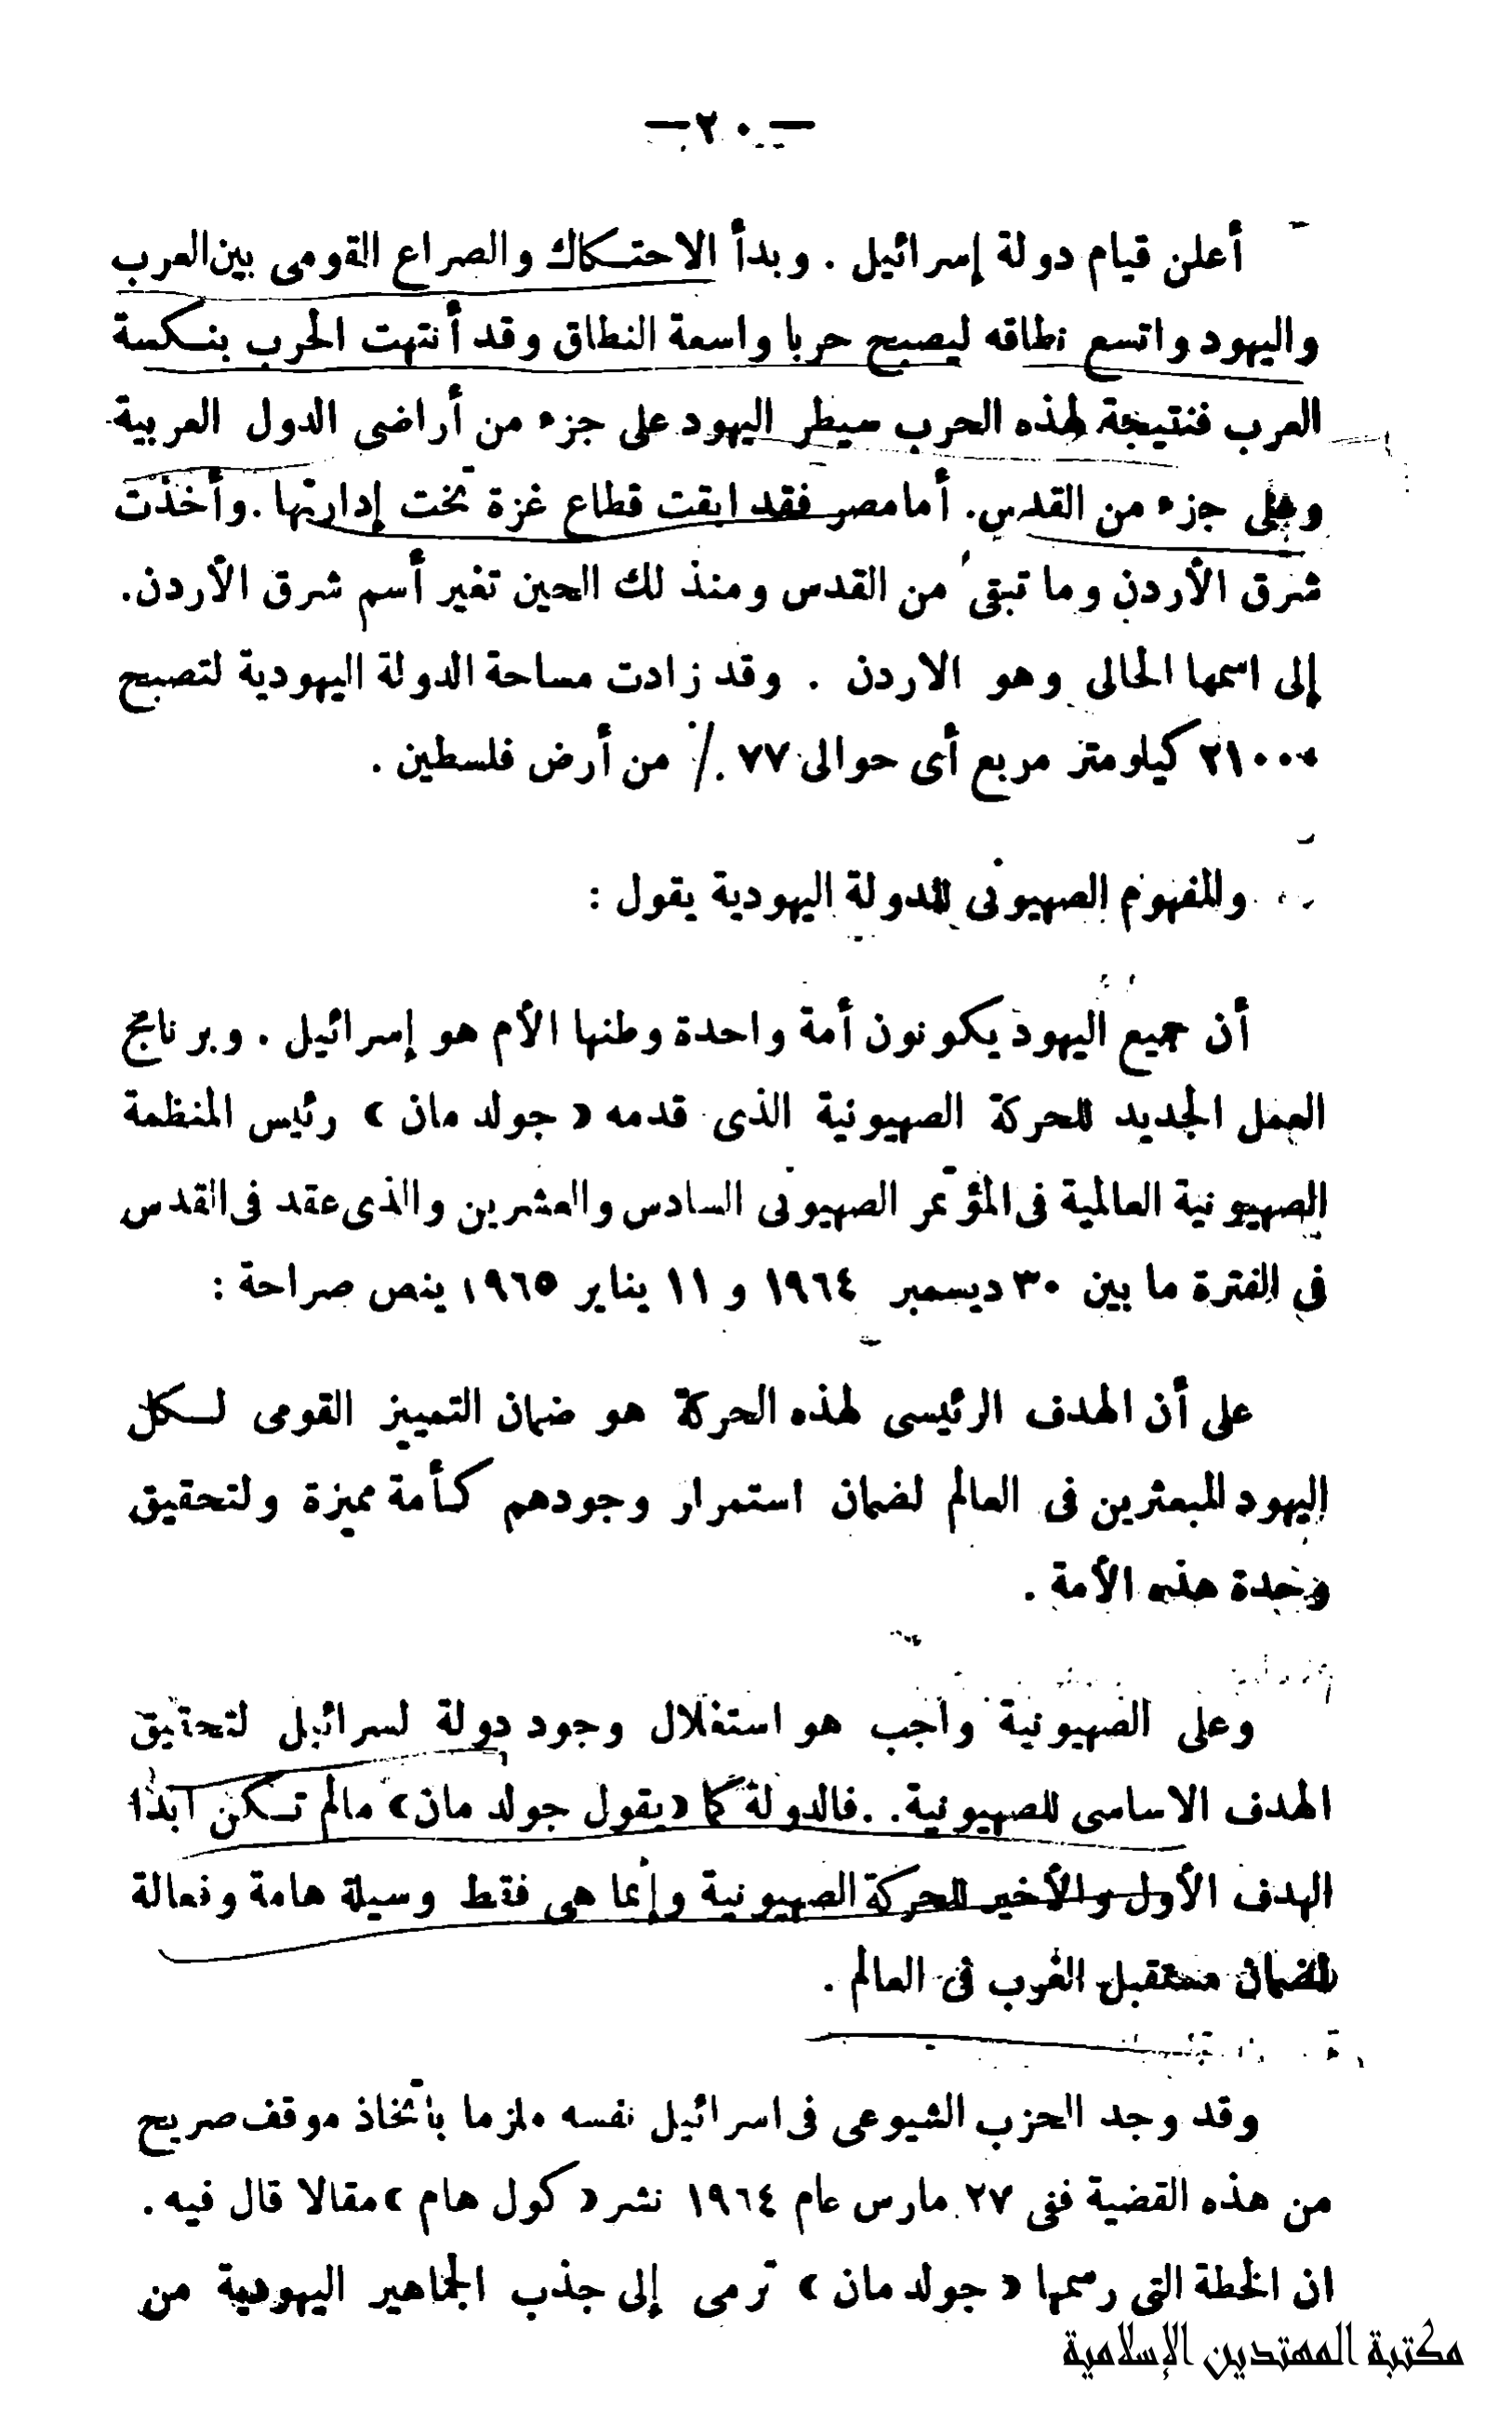 — ٢٠ —
أعلن قيام دولة إسرائيل . وبدأ الاحتكاك والصراع القومى بين العرب
واليهود واتسع نطاقه ليصبح حربا واسعة النطاق وقد أنتهت الحرب بنكسة
العرب فنتيجة لهذه الحرب سيطر اليهود على جزء من أراضى الدول العربية
وعلى جزء من القدس. أما مصر فقد ابقت قطاع غزة تحت إدارتها . وأخذت
شرق الأردن وما تبقى من القدس ومنذ لك الحين تغير أسم شرق الأردن.
إلى اسمها الحالى وهو الاردن . وقد زادت مساحة الدولة اليهودية لتصبح
٢١٠٠٠ كيلومتر مربع أى حوالى ٧٧ ٪ من أرض فلسطين .
والمفهوم الصهيونى للدولة اليهودية يقول :
أن جميع اليهود يكونون أمة واحدة وطنها الأم هو إسرائيل . وبرنامج
العمل الجديد للحركة الصهيونية الذى قدمه « جولد مان » رئيس المنظمة
الصهيونية العالمية فى المؤتمر الصهيونى السادس والعشرين والذى عقد فى القدس
فى الفترة ما بين ٣٠ ديسمبر ١٩٦٤ و ١١ يناير ١٩٦٥ ينص صراحة :
على أن الهدف الرئيسى لهذه الحركة هو ضمان التمييز القومى لكل
اليهود المبعثرين فى العالم لضمان استمرار وجودهم كأمة مميزة ولتحقيق
وحدة هذه الأمة .
وعلى الصهيونية واجب هو استغلال وجود دولة لسرائيل لتحقيق
الهدف الاساسى للصهيونية . . فالدولة كما « يقول جولد مان » مالم تكن ابدا
الهدف الأول والأخير للحركة الصهيونية وإنما هى فقط وسيلة هامة وفعالة
لضمان مستقبل الغرب فى العالم .
وقد وجد الحزب الشيوعى فى اسرائيل نفسه ملزما باتخاذ موقف صريح
من هذه القضية ففى ٢٧ مارس عام ١٩٦٤ نشر « كول هام » مقالا قال فيه .
ان الخطة التى رسمها « جولد مان » ترمى إلى جذب الجماهير اليهودية من
مكتبة المهتدين الإسلامية